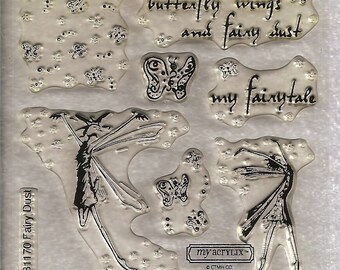 butterfly wings
and fairy dust
my fairytale
1170 Fairy Dust
my acrylix™
© CTMH CO